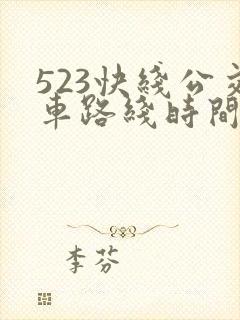 523快綫公交
車路綫時間
李芬